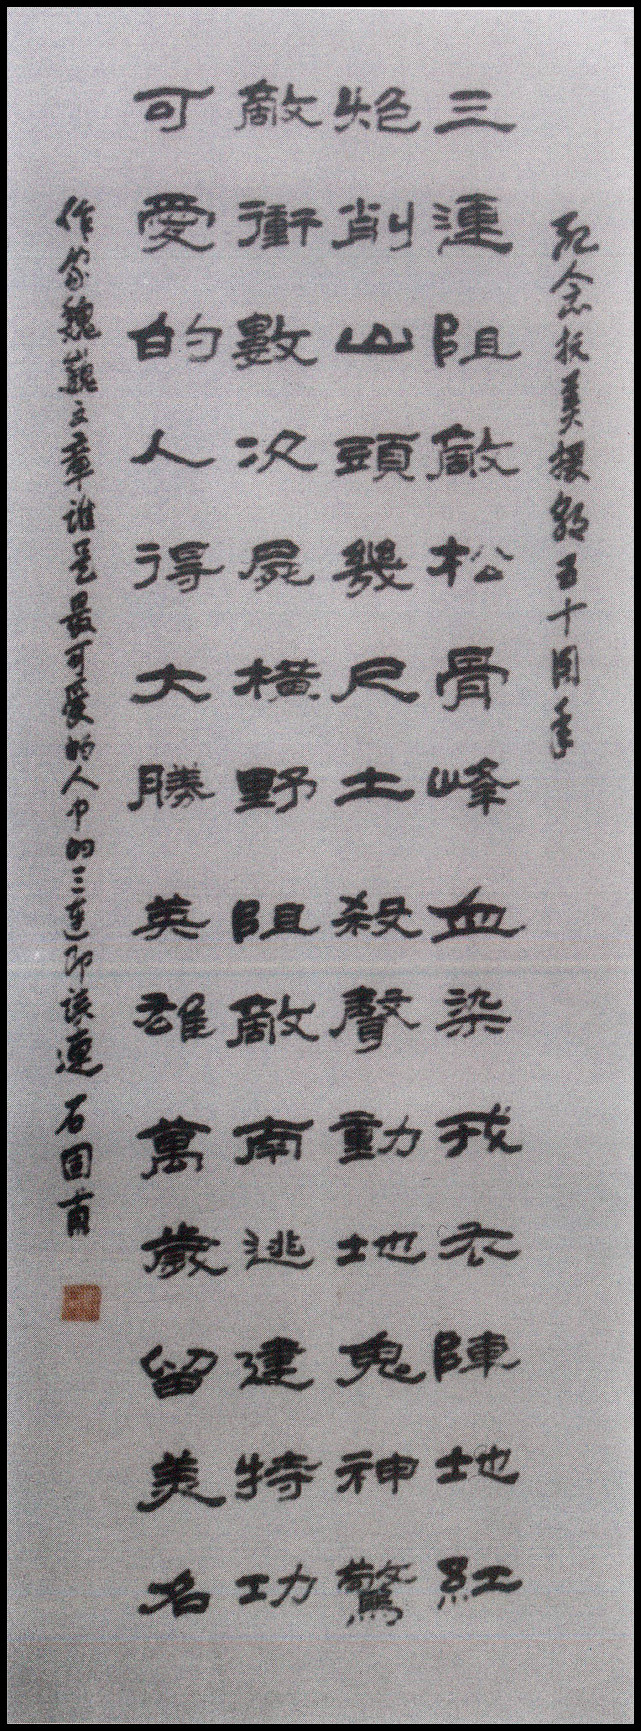 纪念抗美援朝五十周年
三連阻敵松骨峰血染戎衣陣地紅
炮削山頭幾尺土殺聲動地鬼神驚
敵衝數次屍橫野阻敵南逃建特功
可愛的人得大勝英雄萬歲留美名
作家魏巍文章谁是最可爱的人中的三连即该連 石同貴